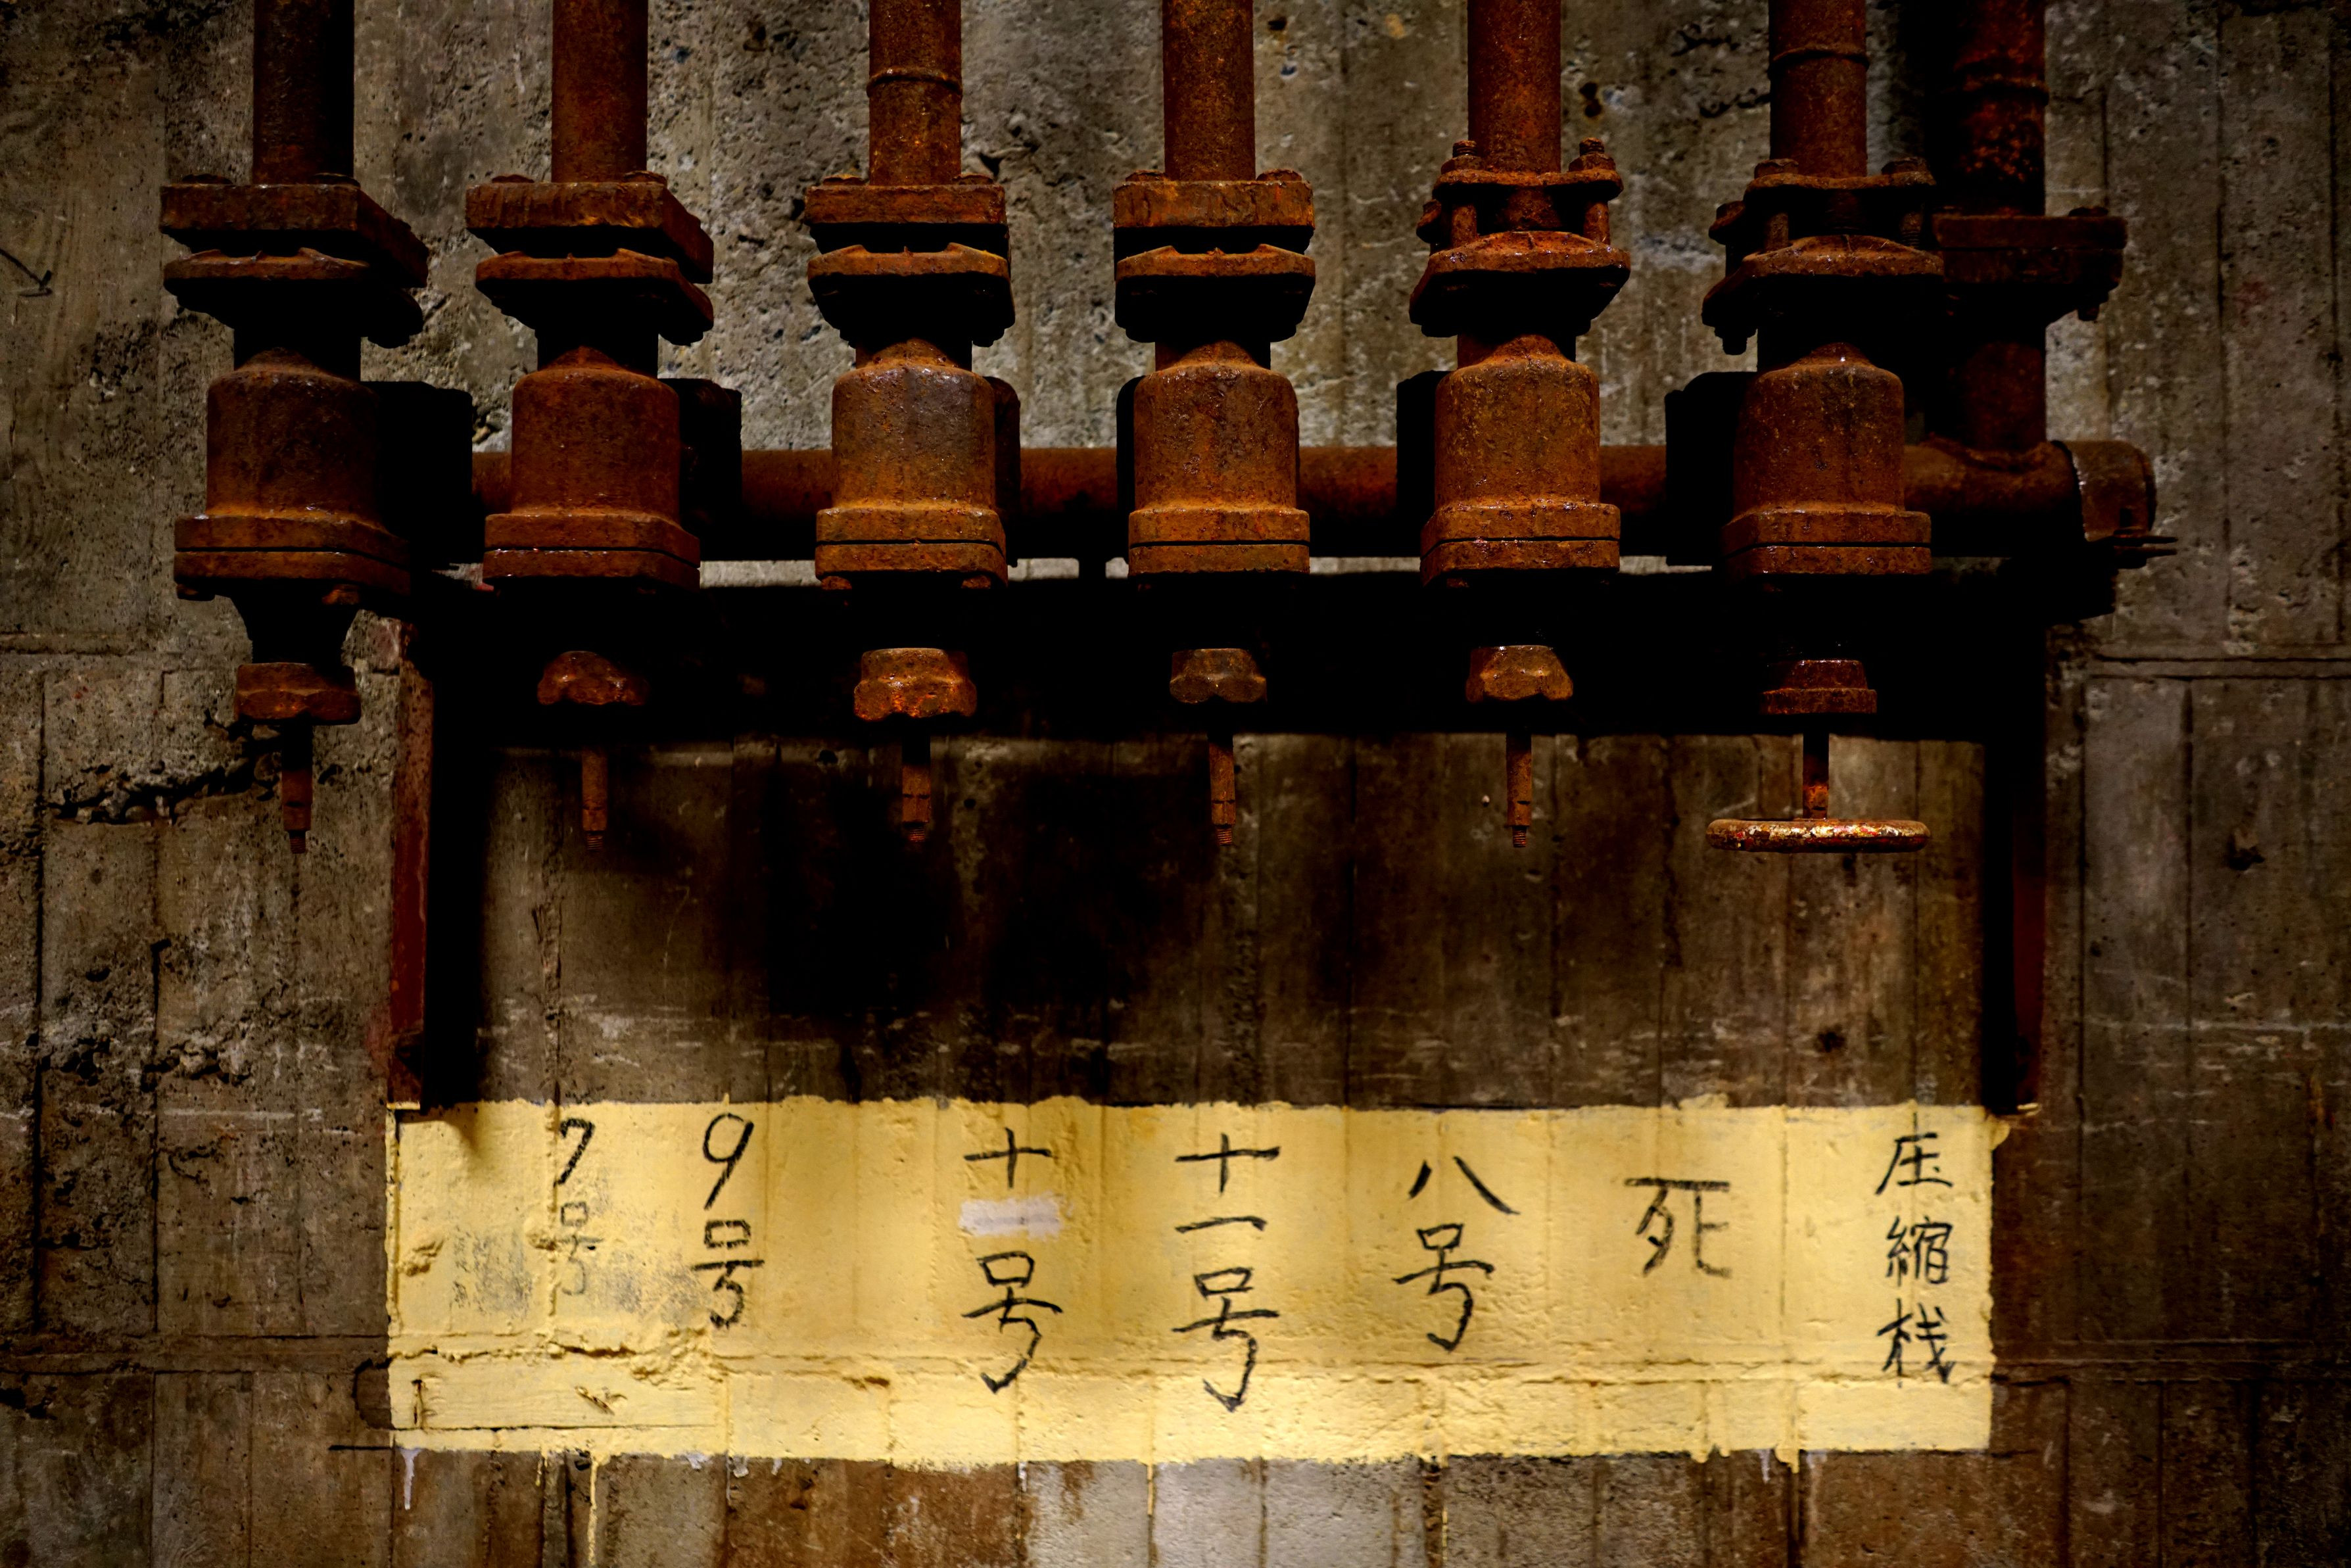 7号
9号
十号
十一号
八号
死
圧縮栈